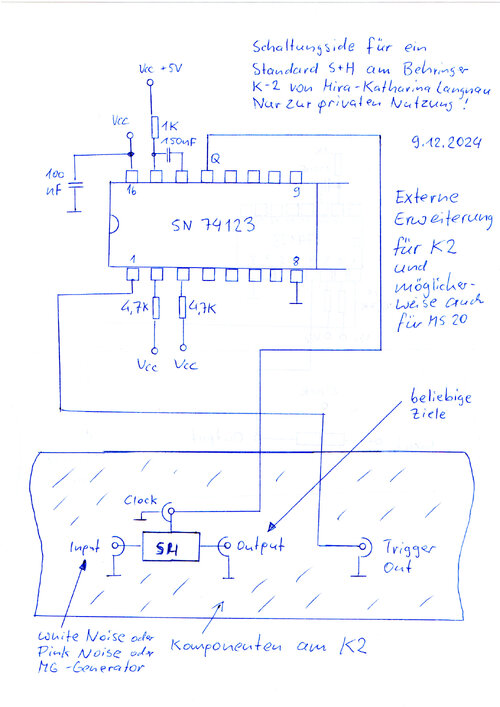 Schaltungside für ein
Standard S+H am Behringer
K-2 von Mira-Katharina Langnau
Nur zur privaten Nutzung!
9.12.2024
Vcc +5V
Vcc
1K
150nF
Q
100
nF
16
9
SN 74123
1
8
4,7K
4,7K
Vcc
Vcc
Externe
Erweiterung
für K2
und
möglicher-
weise auch
für MS 20
beliebige
Ziele
Clock
Input
SH
Output
Trigger
Out
white Noise oder
Pink Noise oder
MG-Generator
Komponenten am K2